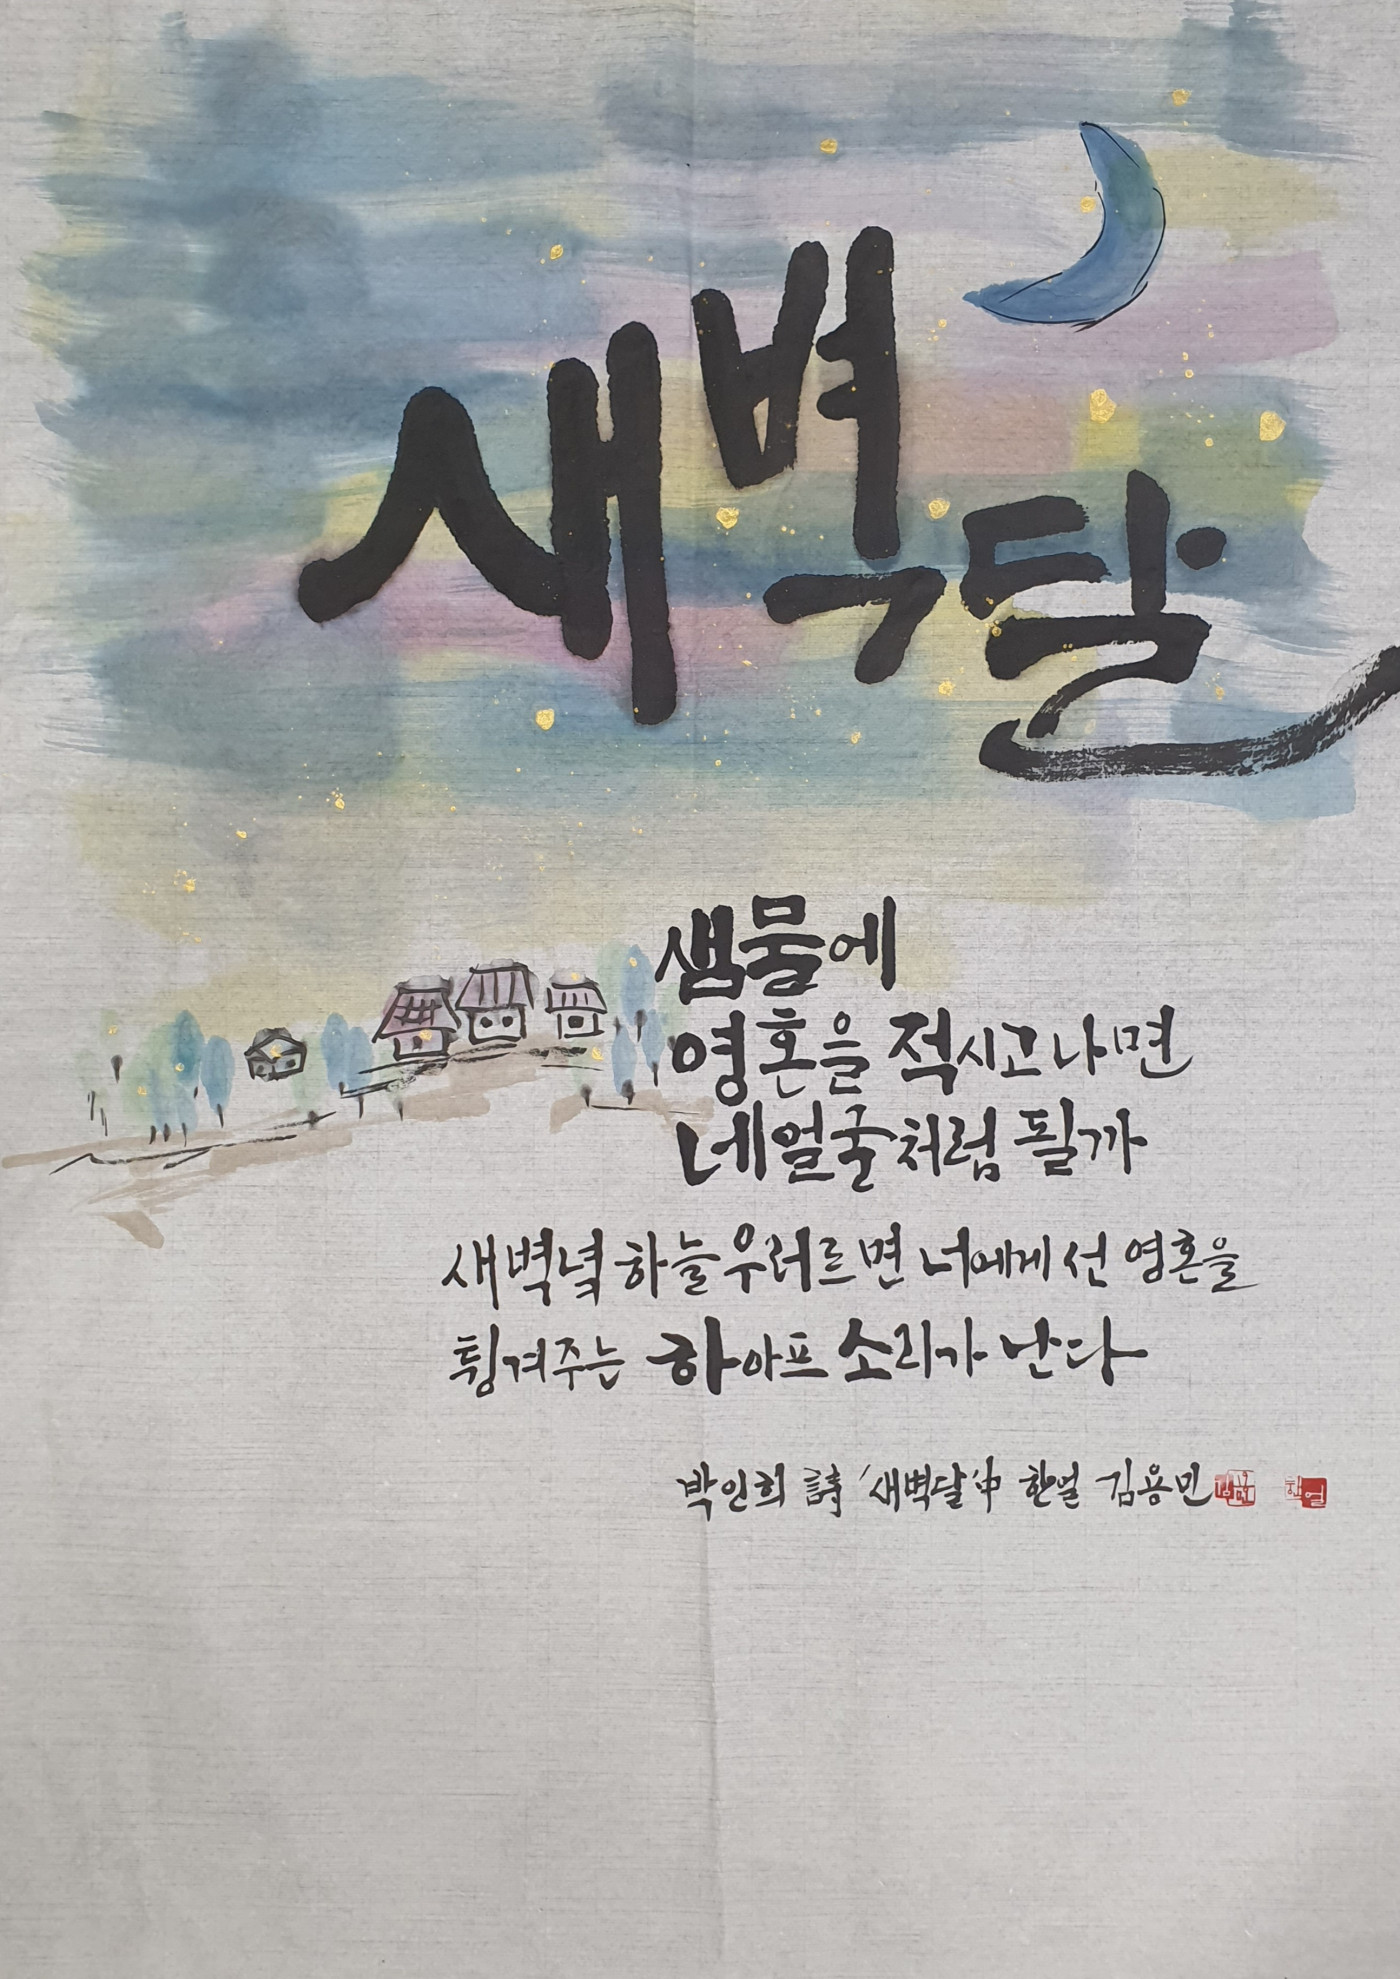 새벽달
샘물에
영혼을 적시고나면
네얼굴처럼 될까
새벽녘 하늘 우러르면 너에게선 영혼을
튕겨주는 하아프 소리가 난다
박인희 詩 '새벽달' 中 한얼 김용민
한얼